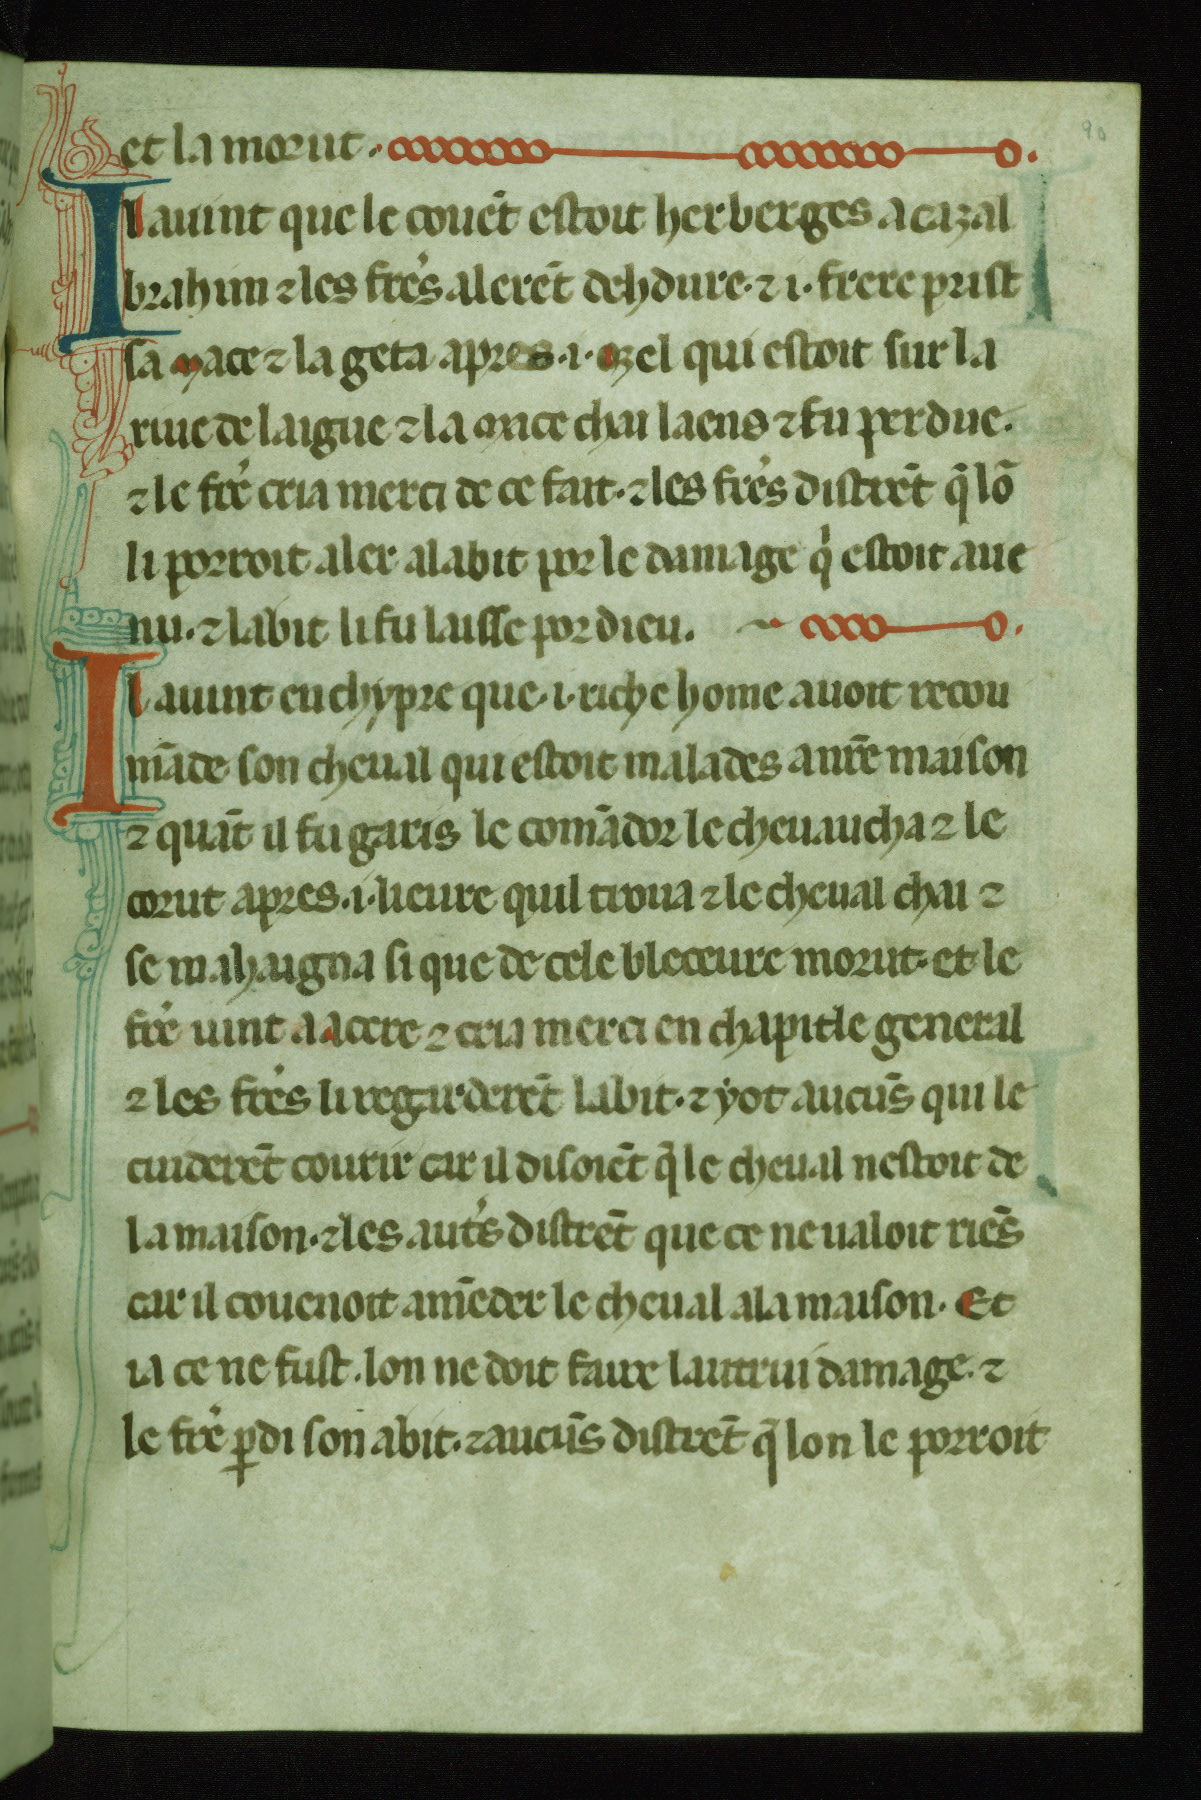 90
et la morut.
Il auint que le couēt estoit herberges a cazal
brahim ⁊ les frēs alerēt dehdure· ⁊ ·i· frere prist
sa mace ⁊ la geta apres ·i· ozel qui estoit sur la
riue de laigue ⁊ la mace chai laens ⁊ fu perdue.
⁊ le frē cria merci de ce fait· ⁊ les frēs distrēt q̄ lō
li porroit aler alabit por le damage q̇ estoit aue
nu· ⁊ labit li fu laisse por dieu.
Il auint en chypre que ·i· riche home auoit recou
māde son cheual qui estoit malades a nrē maison
⁊ quāt il fu garis le comādor le cheuaucha ⁊ le
corut apres ·i· lieure quil troua ⁊ le cheual chai ⁊
se mahaigna si que de cele bleceure morut· et le
frē uint a acere ⁊ cria merci en chapitle general
⁊ les frēs li regarderēt labit· ⁊ yot aucūs qui le
cuiderēt courir car il disoiēt q̄ le cheual nestoit de
la maison· ⁊ les autēs distrēt que ce ne ualoit riēs
car il couenoit amēder le cheual ala maison· Et
ia ce ne fust· lon ne doit faire lautrui damage· ⁊
le frē ꝑdi son abit· ⁊ aucūs distrēt q̄ lon le porroit